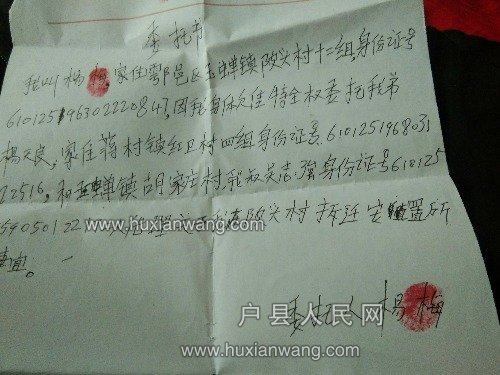 委托书
我叫杨梅家住鄠邑区玉蝉镇陂头村十二组,身份证号
610125196302220847,因我身体欠佳特全权委托我弟
杨天良,家住蒋村镇红卫村四组身份证号6101251968031
22516,和玉蝉镇胡家庄村我叔吴志强身份证号610125
59050122 办理 陂头村拆迁安置所
事宜。
委托人杨梅
www.huxianwang.com
www.huxianwang.com
户县人民网
www.huxianwang.com